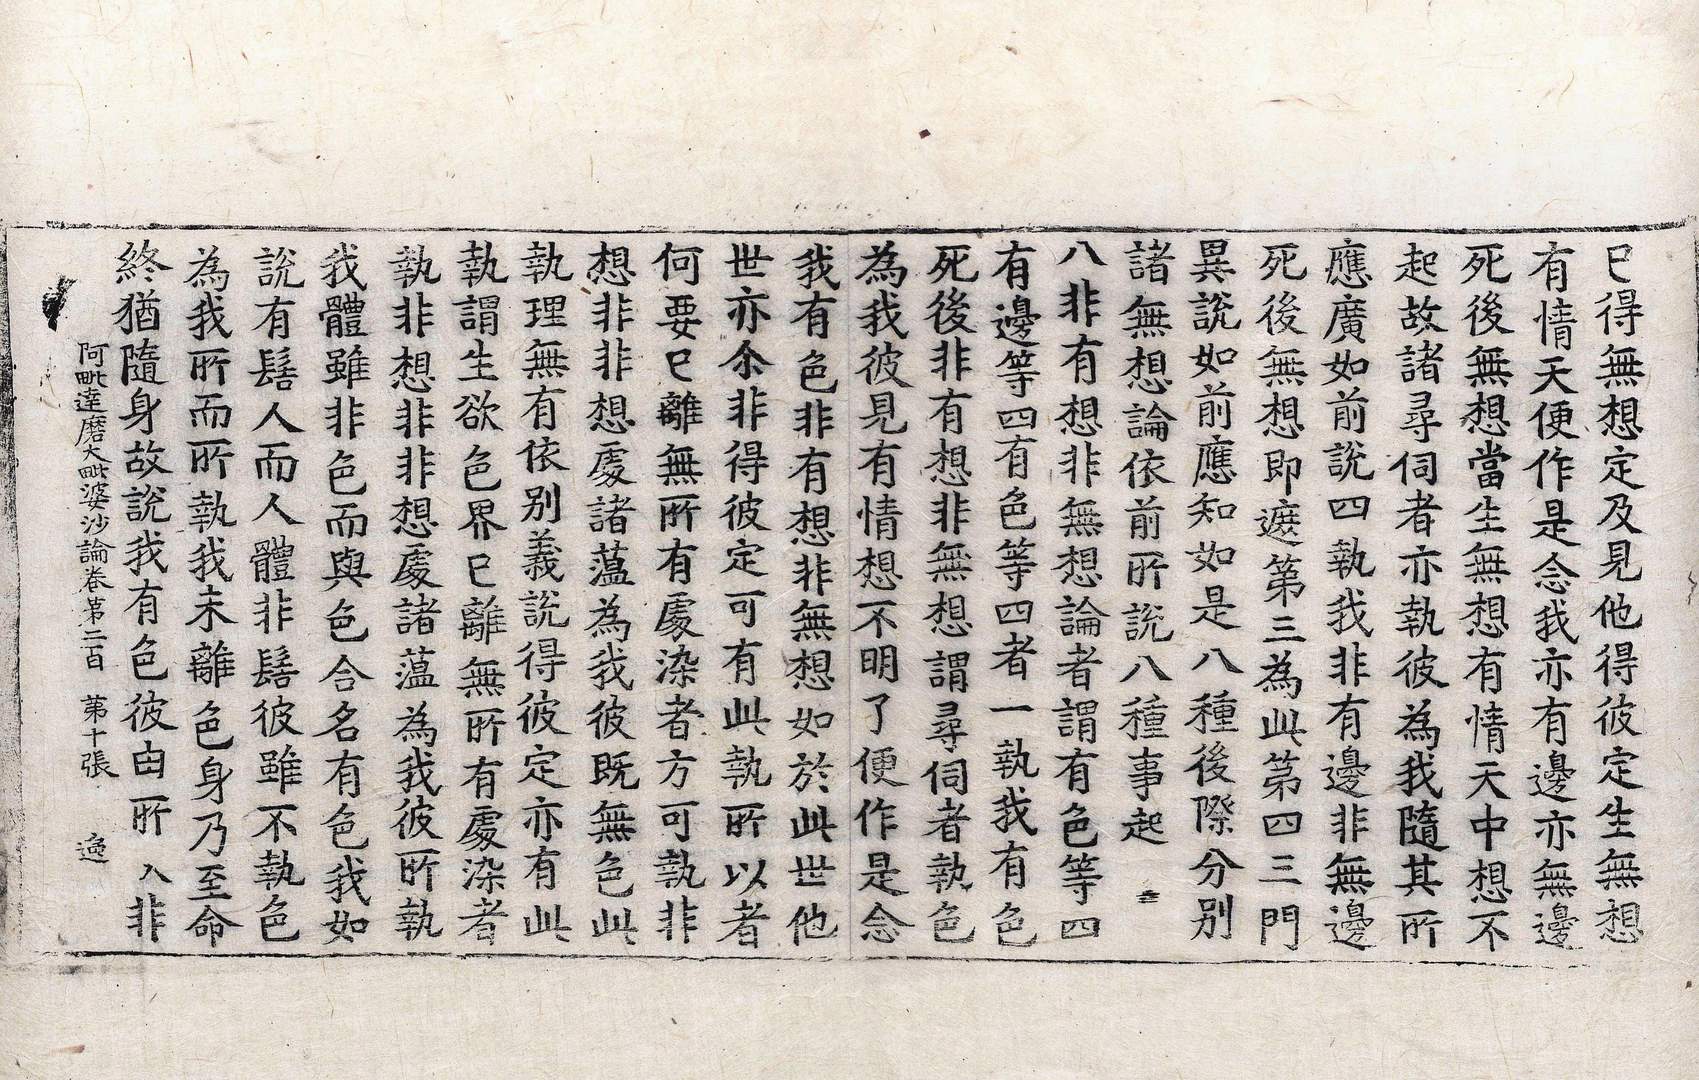 已得無想定及見他得彼定生無想
有情天便作是念我亦有邊亦無邊
死後無想當生無想有情天中想不
起故諸尋伺者亦執彼為我隨其所
應廣如前說四執我非有邊非無邊
死後無想即遮第三為此第四三門
異說如前應知如是八種後際分別
諸無想論依前所說八種事起
八非有想非無想論者謂有色等四
有邊等四有色等四者一執我有色
死後非有想非無想謂尋伺者執色
為我彼見有情想不明了便作是念
我有色非有想非無想如於此世他
世亦尒非得彼定可有此執所以者
何要已離無所有處染者方可執非
想非非想處諸蕰為我彼既無色此
執理無有依別義說得彼定亦有此
執謂生欲色界已離無所有處染者
執非想非非想處諸蕰為我彼所執
我體雖非色而與色合名有色我如
說有髻人而人體非髻彼雖不執色
為我所而所執我未離色身乃至命
終猶隨身故說我有色彼由所 入非
阿毗達磨大毗婆沙論卷第二百 第十張 逸